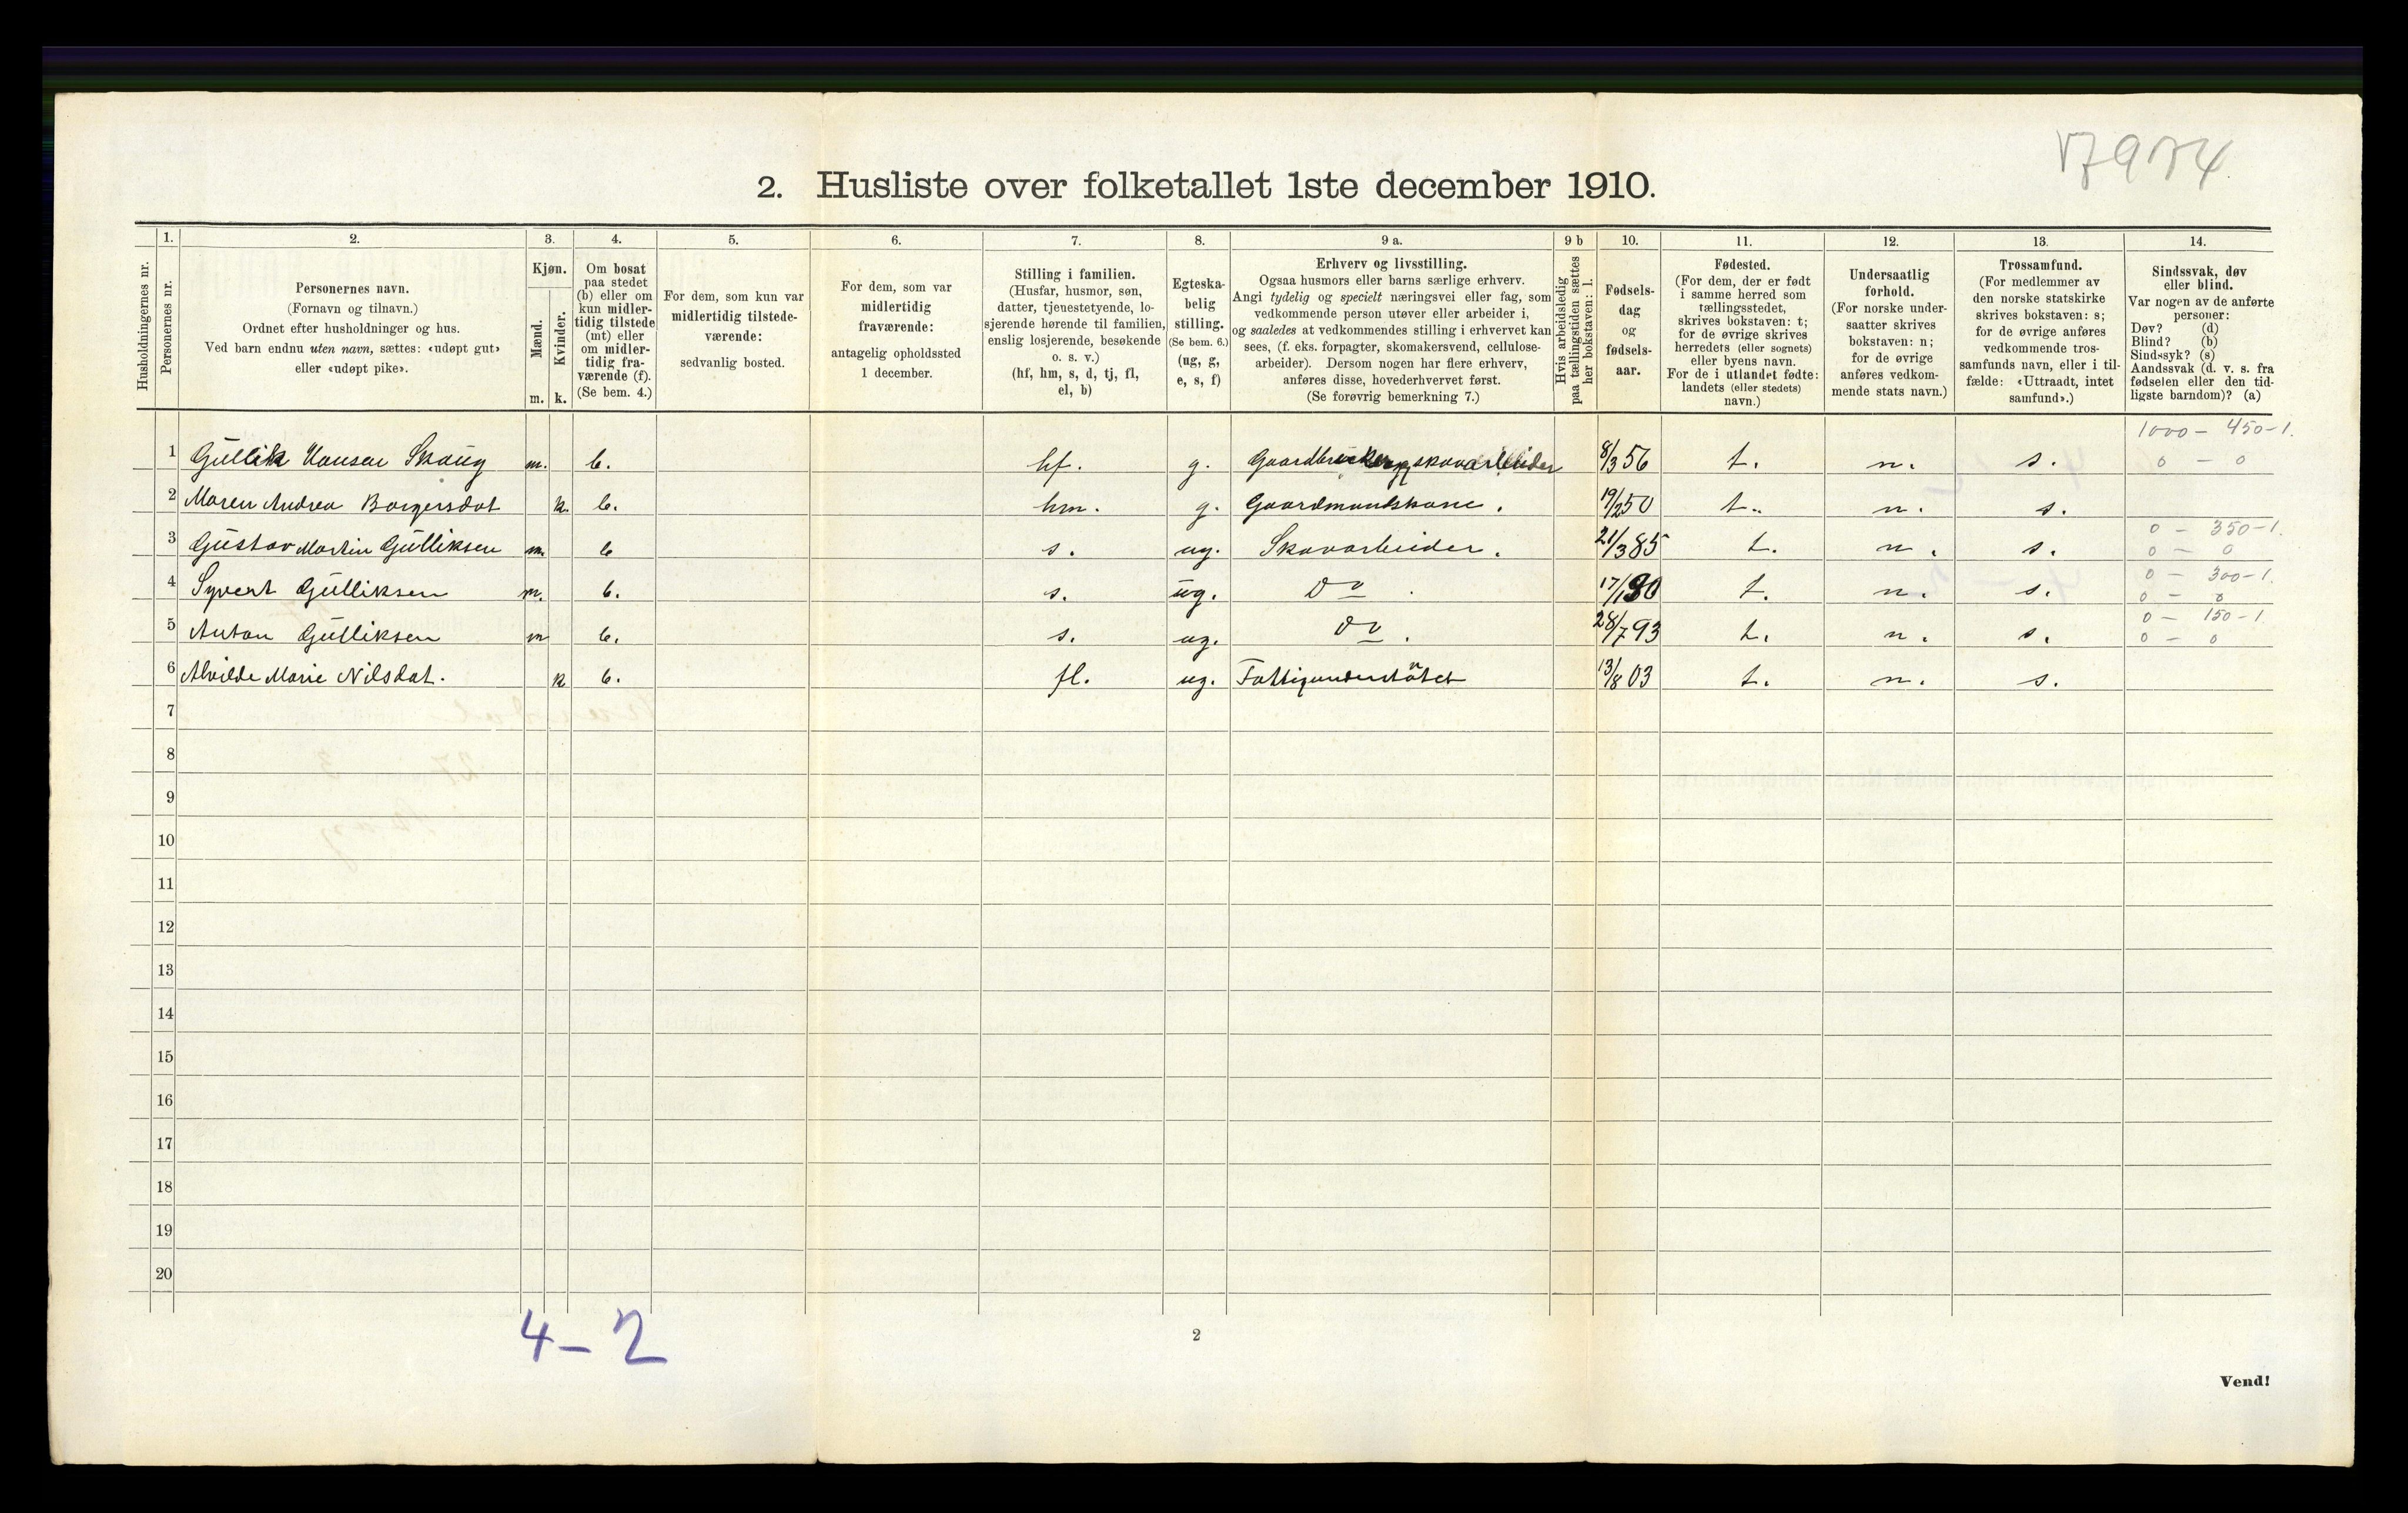 2. Husliste over folketallet 1ste december 1910.
Husholdningernes nr.
1.
Personernes nr.
2.
Personernes navn.
(Fornavn og tilnavn.)
Ordnet efter husholdninger og hus.
Ved barn endnu uten navn, sættes: «udøpt gut»
eller «udøpt pike».
3.
Kjøn.
Mænd.
Kvinder.
m. k.
4.
Om bosat
paa stedet
(b) eller om
kun midler-
tidig tilstede
(mt) eller
om midler-
tidig fra-
værende (f).
(Se bem. 4.)
5.
For dem, som kun var
midlertidig tilstede-
værende:
sedvanlig bosted.
6.
For dem, som var
midlertidig
fraværende:
antagelig opholdssted
1 december.
7.
Stilling i familien.
(Husfar, husmor, søn,
datter, tjenestetyende, lo-
sjerende hørende til familien,
enslig losjerende, besøkende
o. s. v.)
(hf, hm, s, d, tj, fl,
el, b)
8.
Egteska-
belig
stilling.
(Se bem. 6.)
(ug, g,
e, s, f)
9 a.
Erhverv og livsstilling.
Ogsaa husmors eller barns særlige erhverv.
Angi tydelig og specielt næringsvei eller fag, som
vedkommende person utøver eller arbeider i,
og saaledes at vedkommendes stilling i erhvervet kan
sees, (f. eks. forpagter, skomakersvend, cellulose-
arbeider). Dersom nogen har flere erhverv,
anføres disse, hovederhvervet først.
(Se forøvrig bemerkning 7.)
9 b
Hvis arbeidsledig
paa tællingstiden sættes
her bokstaven: l.
10.
Fødsels-
dag
og
fødsels-
aar.
11.
Fødested.
(For dem, der er født
i samme herred som
tællingsstedet,
skrives bokstaven: t;
for de øvrige skrives
herredets (eller sognets)
eller byens navn.
For de i utlandet fødte:
landets (eller stedets)
navn.)
12.
Undersaatlig
forhold.
(For norske under-
saatter skrives
bokstaven: n;
for de øvrige
anføres vedkom-
mende stats navn.)
13.
Trossamfund.
(For medlemmer av
den norske statskirke
skrives bokstaven: s;
for de øvrige anføres
vedkommende tros-
samfunds navn, eller i til-
fælde: «Uttraadt, intet
samfund».)
14.
Sindssvak, døv
eller blind.
Var nogen av de anførte
personer:
Døv? (d)
Blind? (b)
Sindssyk? (s)
Aandssvak (d. v. s. fra
fødselen eller den tid-
ligste barndom)? (a)
1000 - 450-1.
1 Gullik Hansen Skaug m. b. hf. g. Gaardbruker og skovarbeider 8/3 56 t. n. s. 0 - 0
2 Maren Andrea Borgersdat k. b. hm. g. Gaardmandskone. 19/2 50 t. n. s.
0 - 350-1.
3 Gustav Martin Gulliksen m. b s. ug. Skovarbeider. 21/3 85 t. n. s. 0 - 0
0 - 300-1.
4 Syvert Gulliksen m. b. s. ug. Do. 17/1 90 t. n. s. 0 - 0
0 - 150-1
5 Anton Gulliksen m b. s. ug. Do. 28/7 93 t. n. s. 0 - 0
6 Alvilde Marie Nilsdat. k b. fl. ug. Fattigunderstötet 13/8 03 t. n. s.
7
8
9
10
11
12
13
14
15
16
17
18
19
20
4-2
2
Vend!